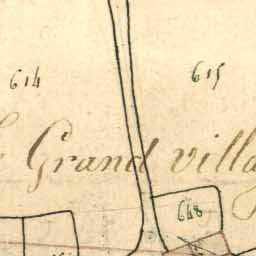 614
615
Grand villa
648